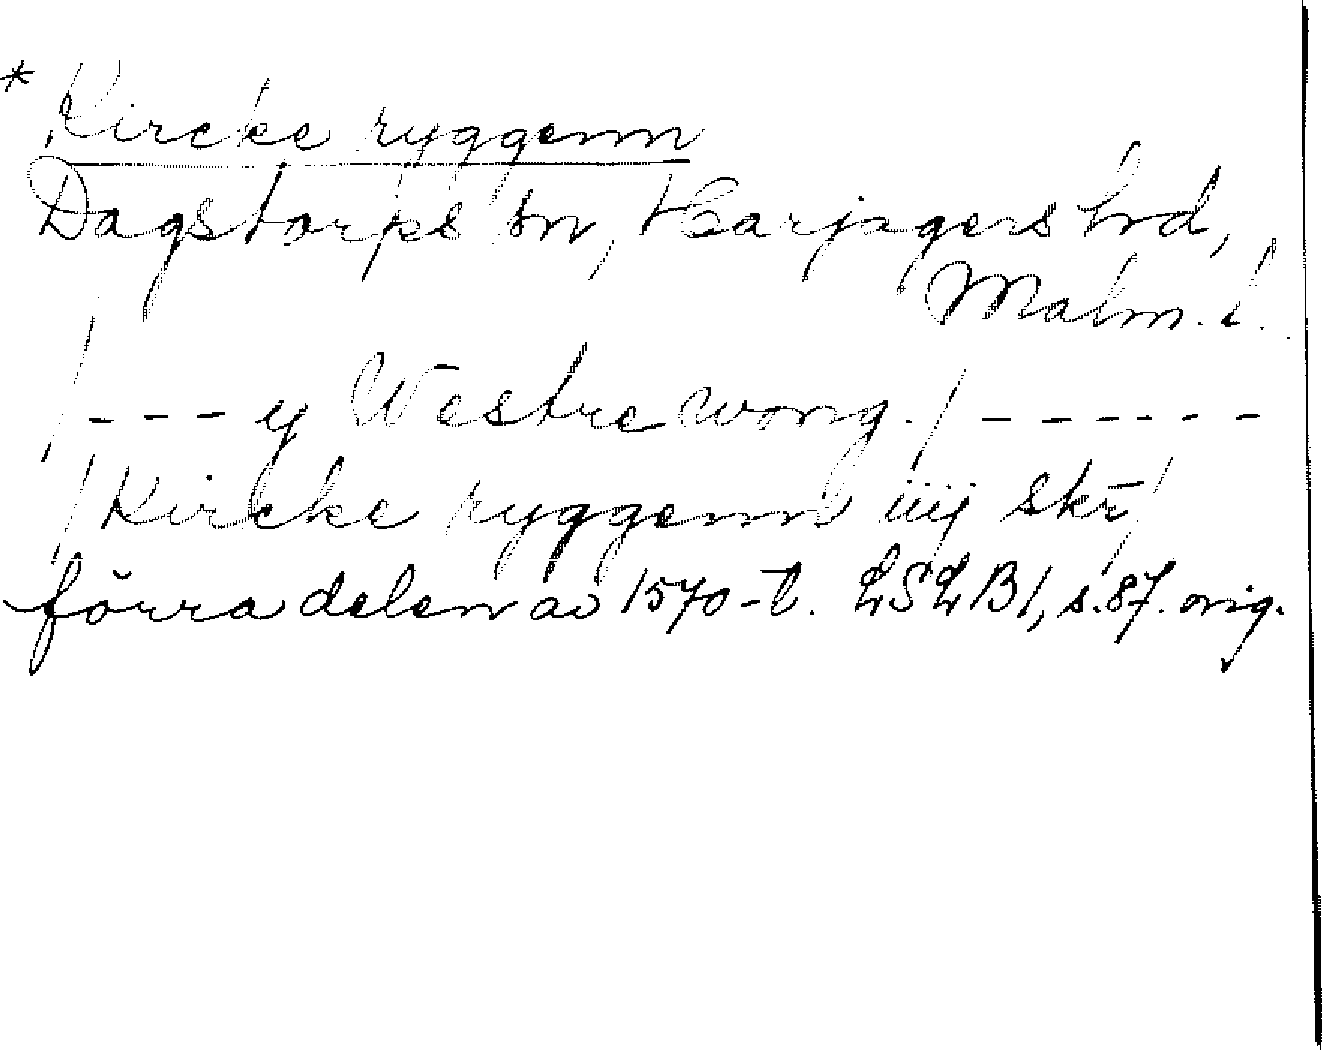 * Kircke ryggenn
Dagstorps sn, Harjagers hrd,
Malm. l.
/ - - - y Westre wong. / - - - - - -
/ Kircke ryggenn iiij skr̄ /
förra delen av 1570-t. LSLB1, s.87. orig.